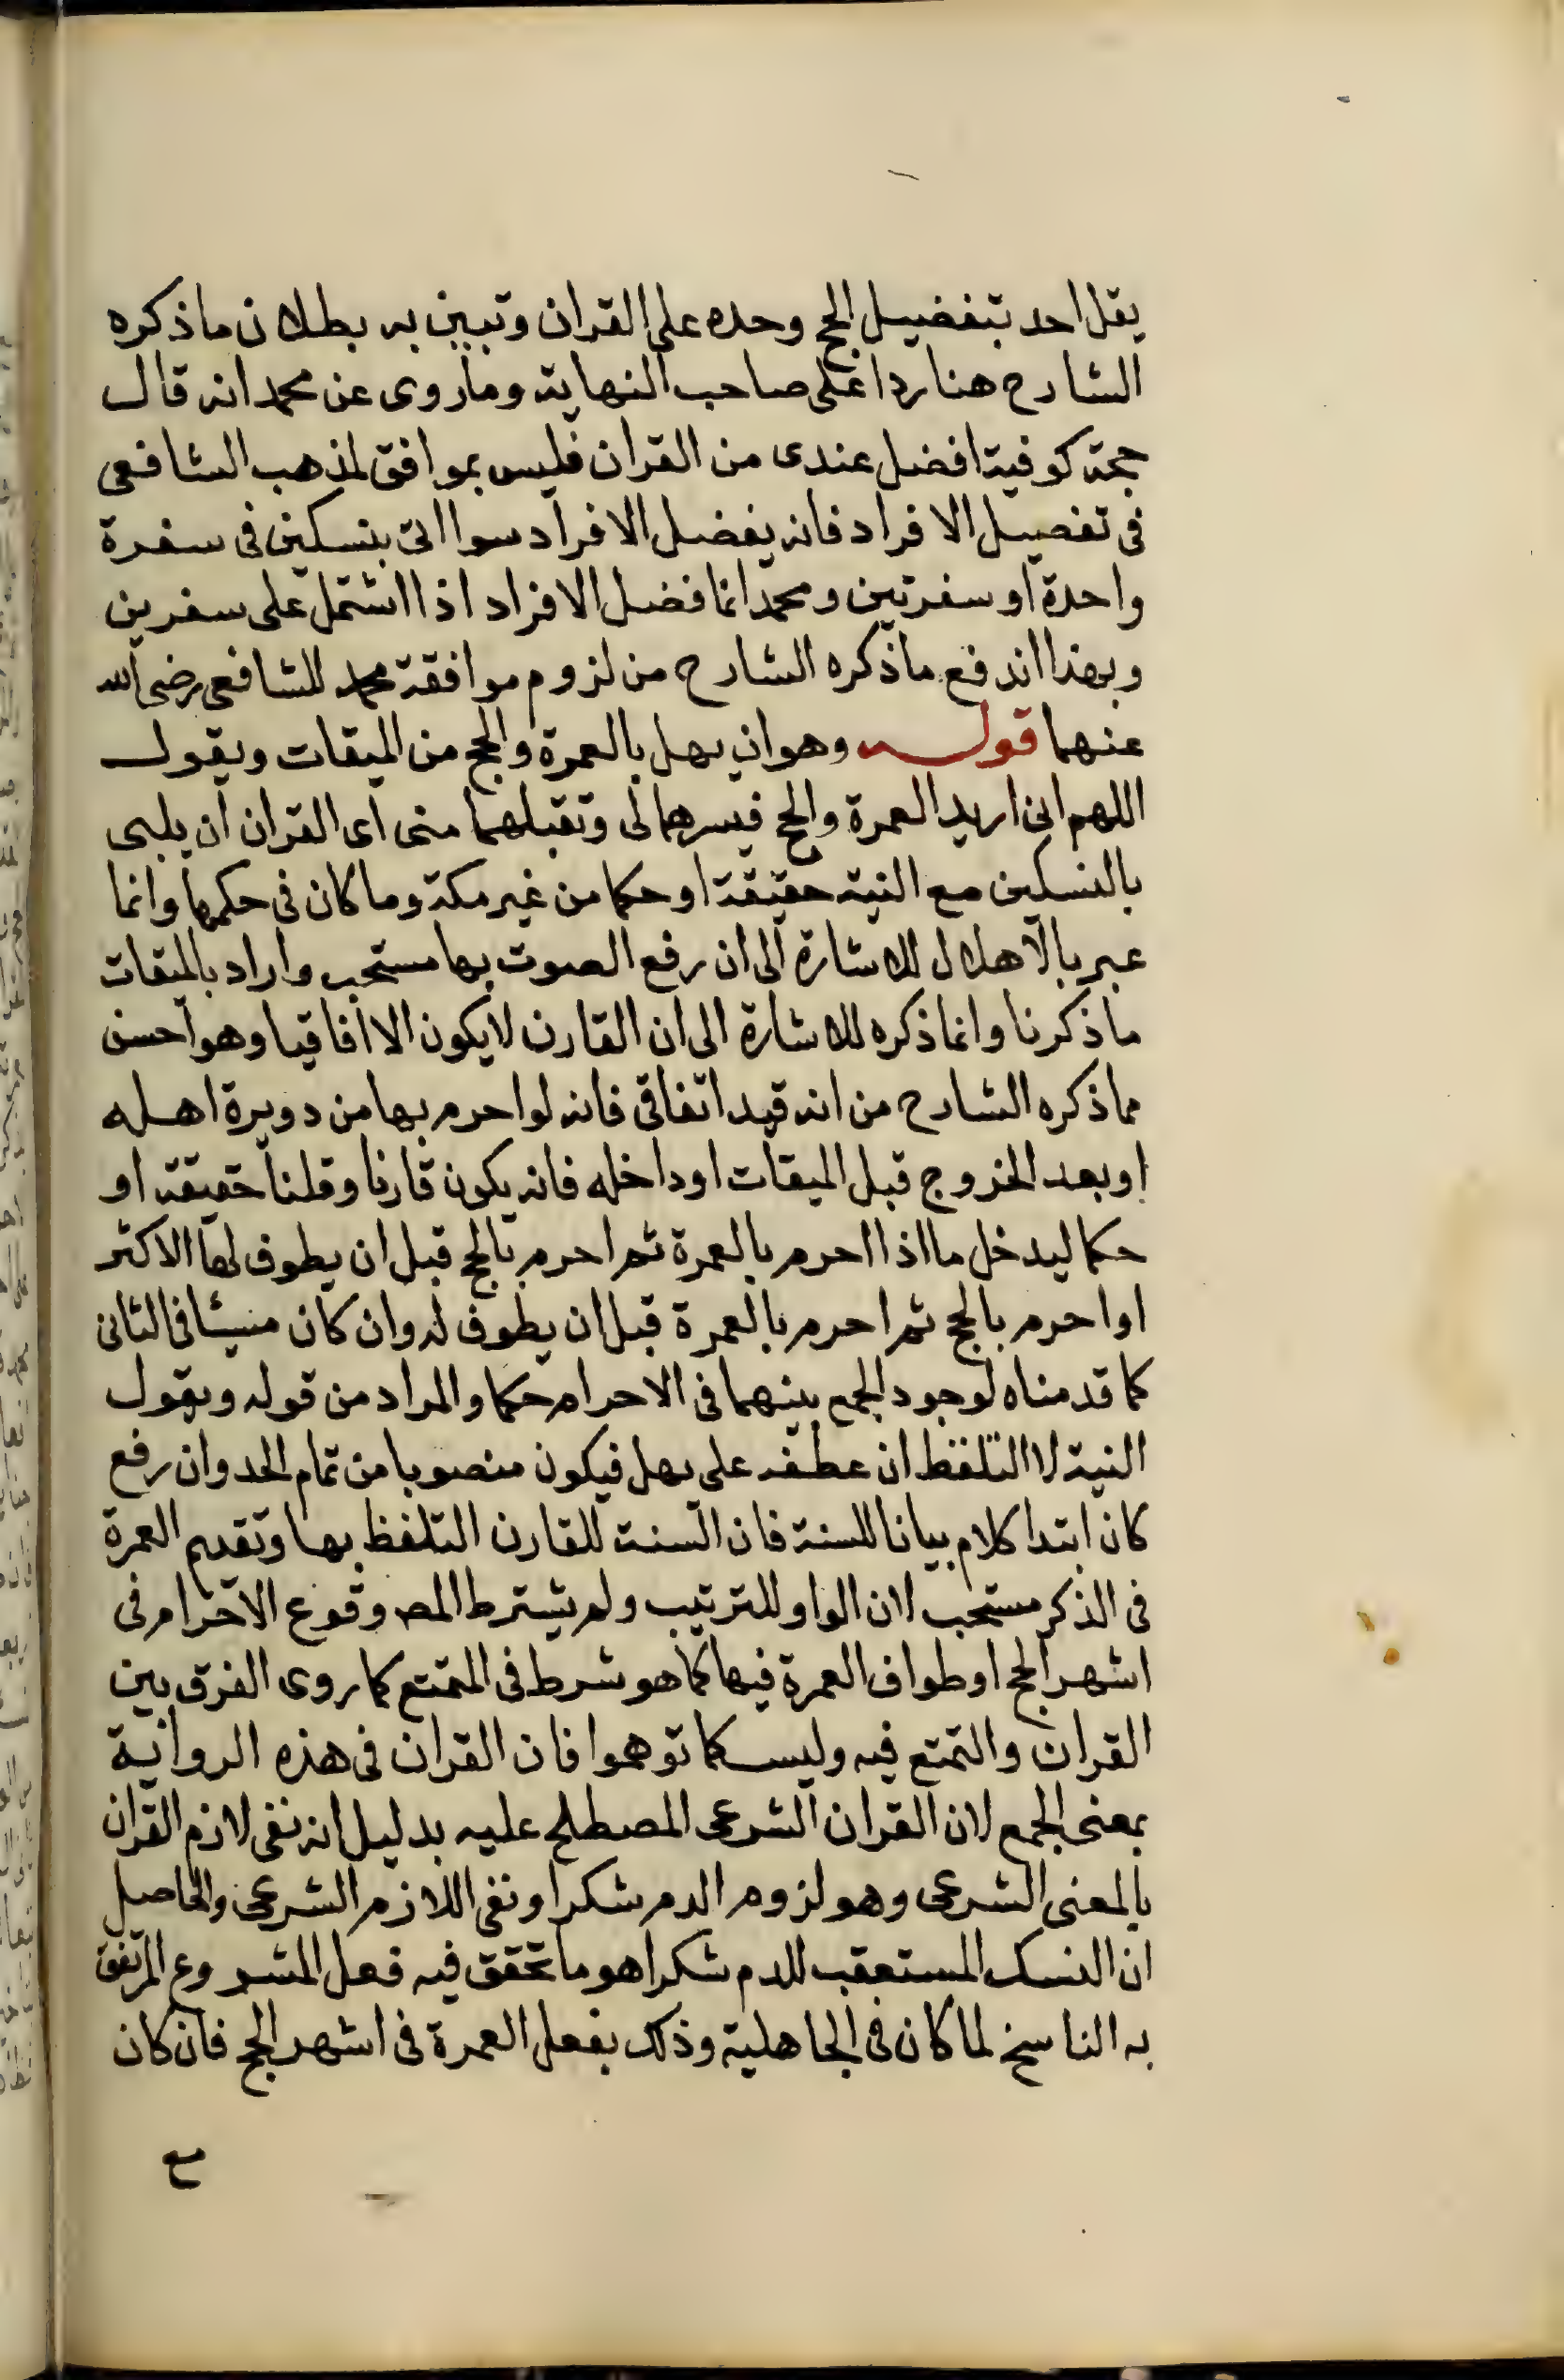 يقل احد بتفضيل الحج وحده على القران وتبين به بطلان ما ذكره
الشارح هنا ردا على صاحب النهاية وما روى عن محمد انه قال
حجة كوفية افضل عندى من القران فليس بموافق لمذهب الشافعى
فى تفصيل الافراد فانه يفضل الافراد سوا اتى بنسكين فى سفرة
واحدة او سفرتين ومحمد انما فضل الافراد اذا اشتمل على سفرين
وبهذا اندفع ما ذكره الشارح من لزوم موافقة محمد للشافعى رضى الله
عنهما قوله وهو ان يهل بالعمرة والحج من الميقات ويقول
اللهم انى اريد العمرة والحج فيسرهما لى وتقبلهما منى اى القران ان يلبى
بالنسكين مع النية حقيقة او حكما من غير مكة وما كان فى حكمها وانما
عبر بالاهلال للاشارة الى ان رفع الصوت بها مستحب واراد بالميقات
ما ذكرنا وانما ذكره للاشارة الى ان القارن لا يكون الا افاقيا وهو احسن
مما ذكره الشارح من انه قيد اتفاقى فانه لو احرم بها من دويرة اهله
او بعد الخروج قبل الميقات او داخله فانه يكون قارنا وقلنا حقيقة او
حكما ليدخل ما اذا احرم بالعمرة ثم احرم بالحج قبل ان يطوف لها الاكثر
او احرم بالحج ثم احرم بالعمرة قبل ان يطوف له وان كان مسيئا فى الثانى
كما قدمناه لوجود الجمع بينهما فى الاحرام حكما والمراد من قوله ويقول
النية لا التلفظ ان عطف على يهل فيكون منصوبا من تمام الحد وان رفع
كان ابتدا كلام بيانا للسنة فان السنة للقارن التلفظ بها وتقديم العمرة
فى الذكر مستحب لان الواو للترتيب ولم يشترط المص وقوع الاحرام فى
اشهر الحج او طواف العمرة فيها كما هو شرط فى المتمتع كما روى الفرق بين
القران والتمتع فيه وليس كما توهموا فان القران فى هذه الرواية
بمعنى الجمع لان القران الشرعى المصطلح عليه بدليل انه نفى لازم القران
بالمعنى الشرعى وهو لزوم الدم شكرا ونفى اللازم الشرعى والحاصل
ان النسك المستعقب للدم شكرا هو ما تحقق فيه فعل المشروع المرتفق
به الناسخ لما كان فى الجاهلية وذلك بفعل العمرة فى اشهر الحج فان كان
مع